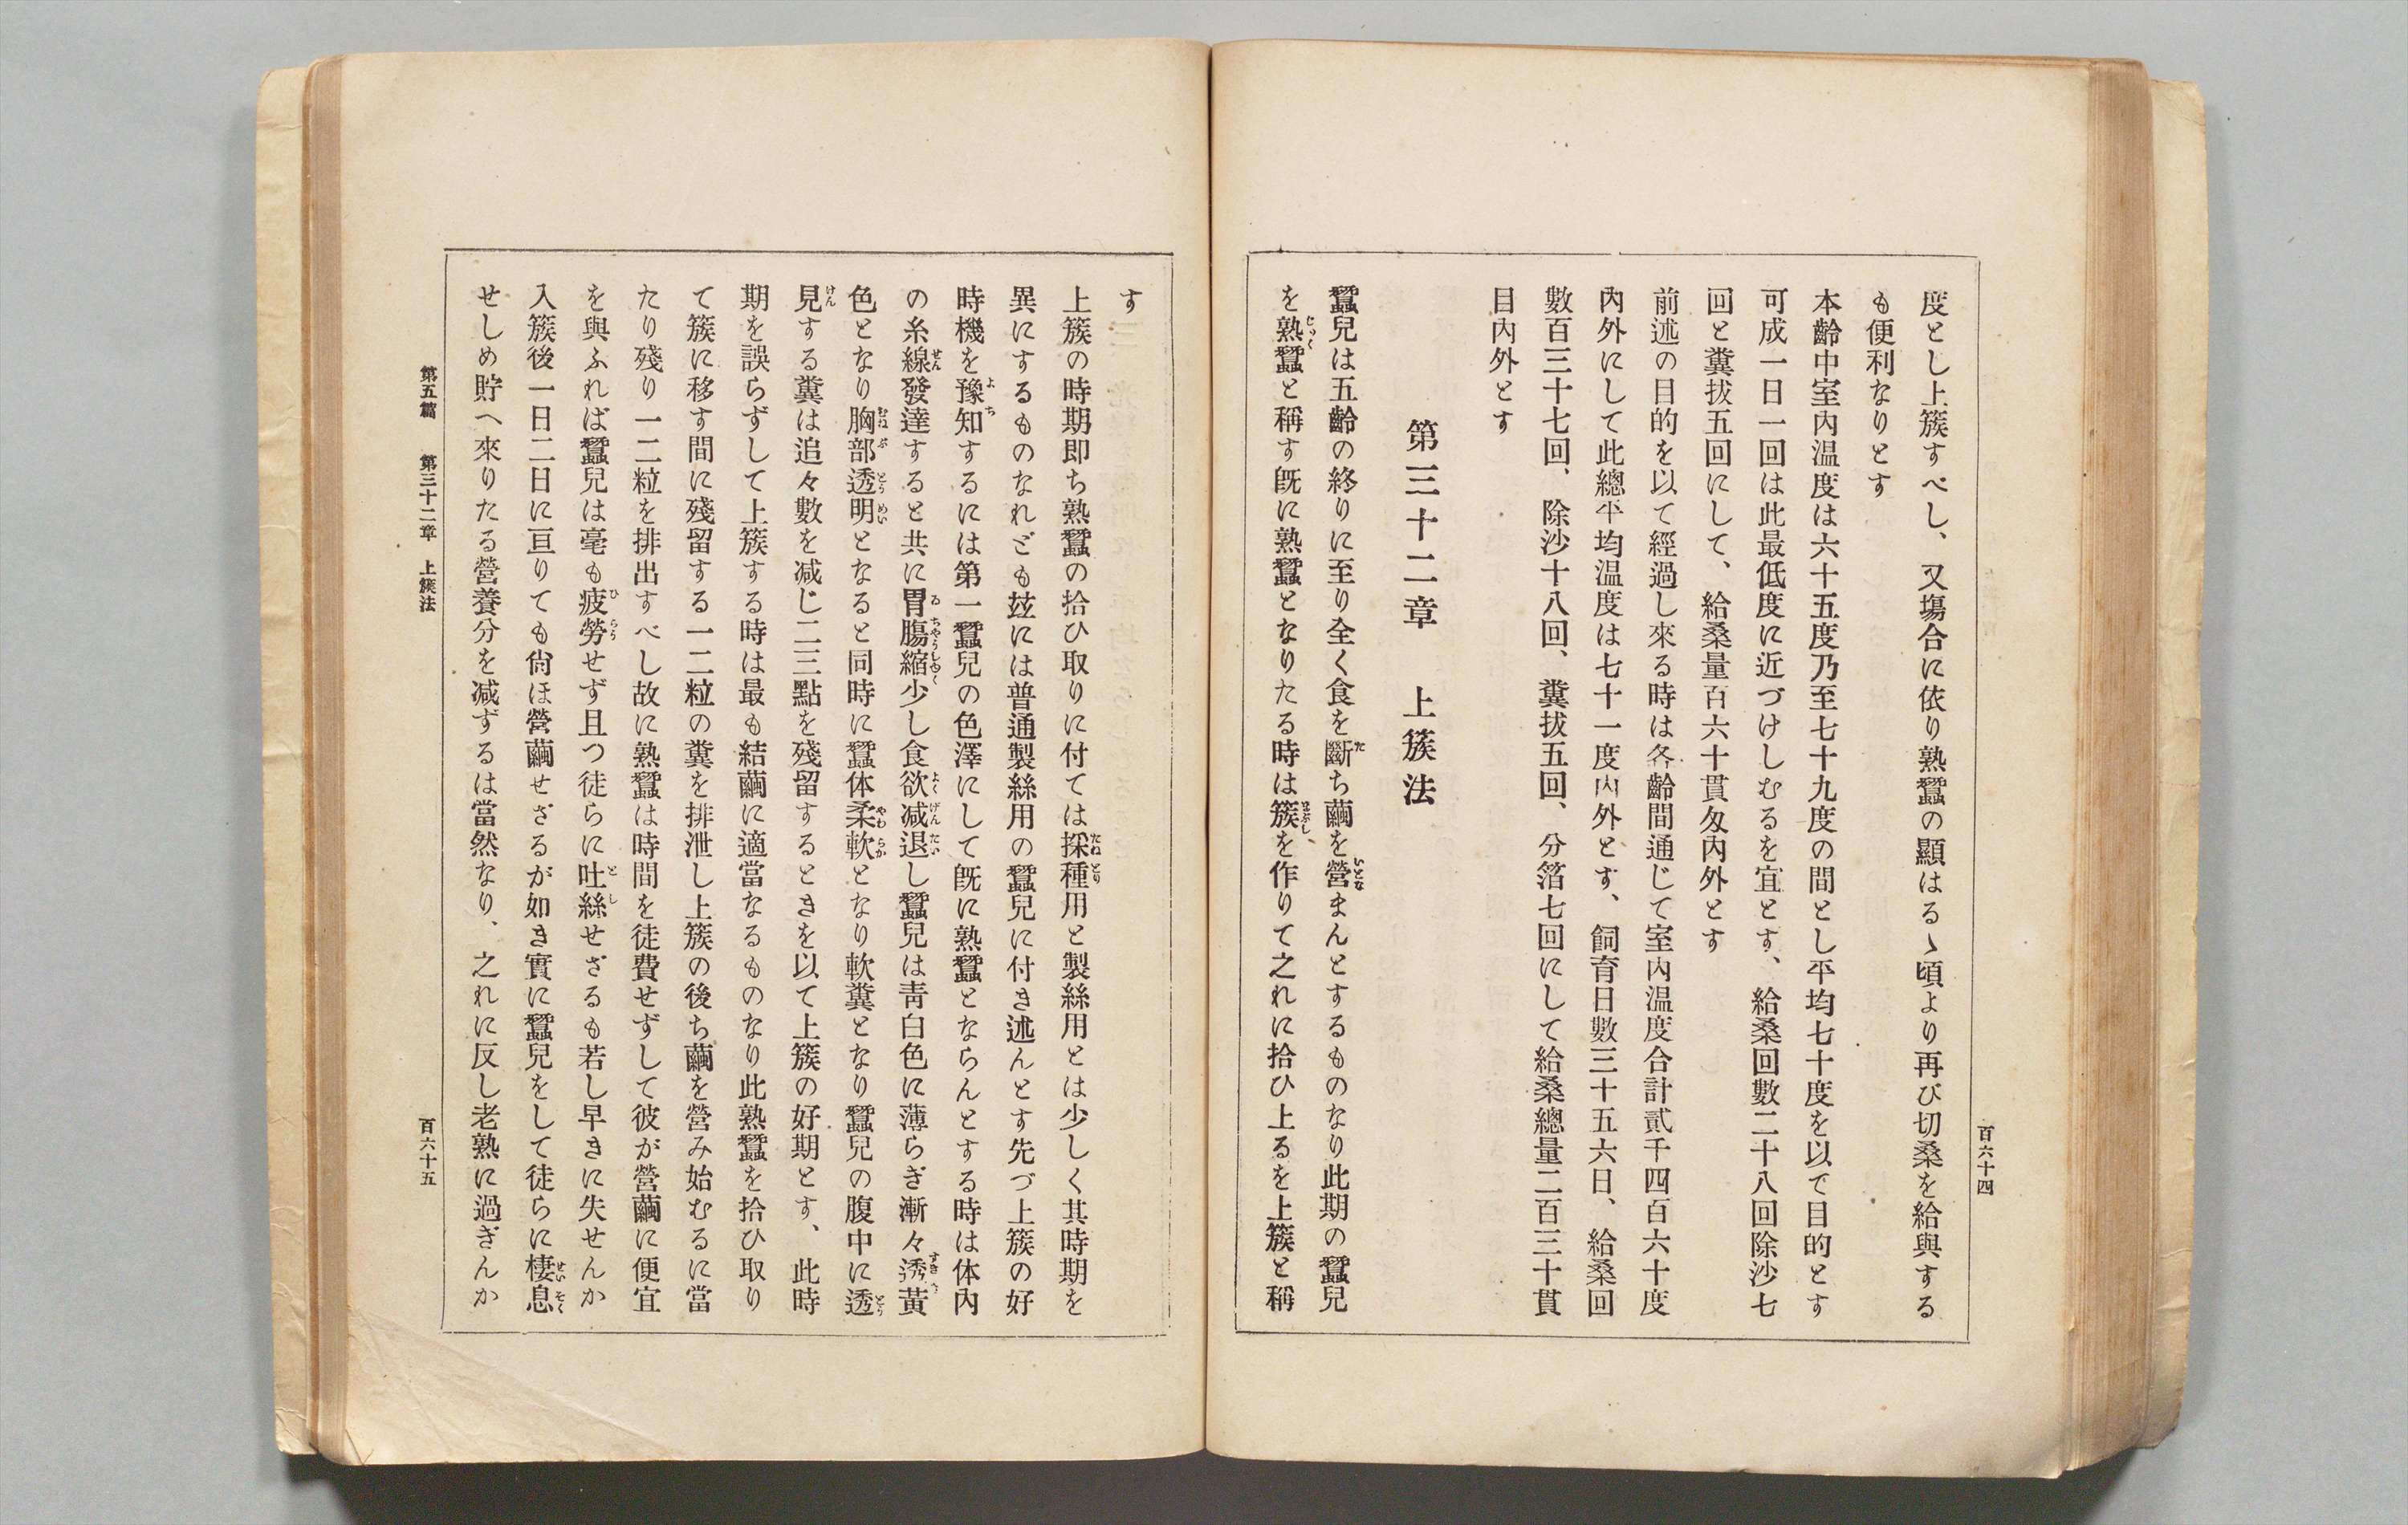 百六十四
度とし上簇すべし、又塲合に依り熟蠶の顯はるゝ頃より再び切桑を給與する
も便利なりとす
本齡中室内温度は六十五度乃至七十九度の間とし平均七十度を以て目的とす
可成一日一回は此最低度に近づけしむるを宜とす、給桑回數二十八回除沙七
回と糞拔五回にして、給桑量百六十貫匁内外とす
前述の目的を以て經過し來る時は各齡間通じて室内温度合計貳千四百六十度
内外にして此總平均温度は七十一度内外とす、飼育日數三十五六日、給桑回
數百三十七回、除沙十八回、糞拔五回、分箔七回にして給桑總量二百三十貫
目内外とす
第三十二章 上簇法
蠶兒は五齡の終りに至り全く食を斷ち繭を營まんとするものなり此期の蠶兒
を熟蠶と稱す既に熟蠶となりたる時は簇を作りて之れに拾ひ上るを上簇と稱
す
上簇の時期即ち熟蠶の拾ひ取りに付ては採種用と製絲用とは少しく其時期を
異にするものなれども玆には普通製絲用の蠶兒に付き述んとす先づ上簇の好
時機を豫知するには第一蠶兒の色澤にして既に熟蠶とならんとする時は体内
の糸線發達すると共に胃膓縮少し食欲减退し蠶兒は靑白色に薄らぎ漸々透黃
色となり胸部透明となると同時に蠶体柔軟となり軟糞となり蠶兒の腹中に透
見する糞は追々數を减じ二三點を殘留するときを以て上簇の好期とす、此時
期を誤らずして上簇する時は最も結繭に適當なるものなり此熟蠶を拾ひ取り
て簇に移す間に殘留する一二粒の糞を排泄し上簇の後ち繭を營み始むるに當
たり殘り一二粒を排出すべし故に熟蠶は時間を徒費せずして彼が營繭に便宜
を與ふれば蠶兒は毫も疲勞せず且つ徒らに吐絲せざるも若し早きに失せんか
入簇後一日二日に亘りても尙ほ營繭せざるが如き實に蠶兒をして徒らに棲息
せしめ貯へ來りたる營養分を减ずるは當然なり、之れに反し老熟に過ぎんか
第五篇 第三十二章 上簇法
百六十五